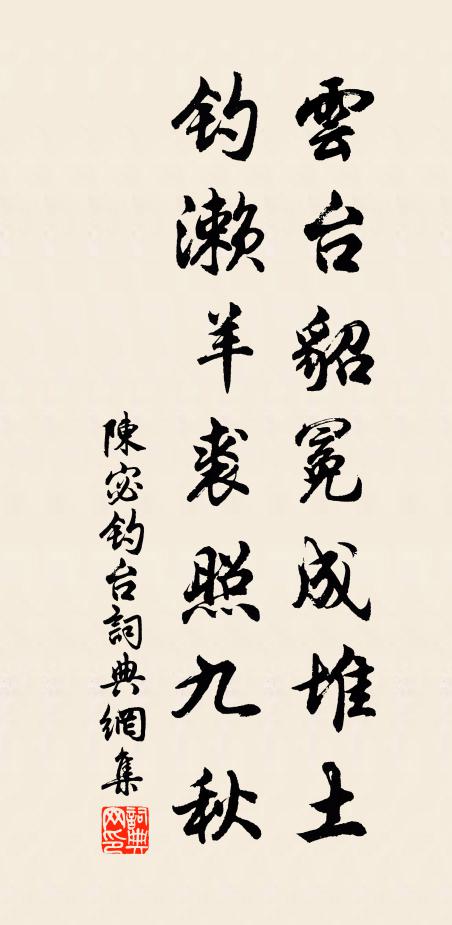 雲台貂冕成堆土
钓濑羊裘照九秋
陳宓钓台詞典網集
詞典网印